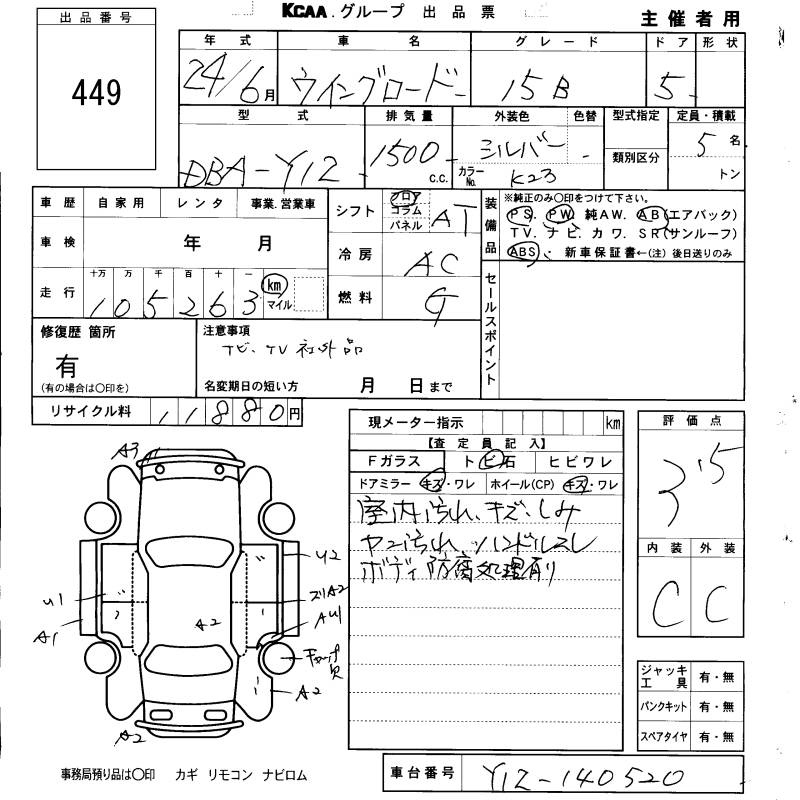 KCAA.グループ 出品票
主催者用
出品番号
449
年式 車名 グレード ドア 形状
24/6月 ウイングロード 15B 5
型式 排気量 外装色 色替 型式指定 定員・積載
DBA-Y12 1500 c.c. シルバー 5名
カラーNo. K23 類別区分 トン
車歴 自家用 レンタ 事業.営業車
車検 年 月
走行 十万 万 千 百 十 一 km マイル
105263
シフト フロア コラム パネル AT
冷房 AC
燃料 G
装備品 ※純正のみ○印をつけて下さい。
PS. PW 純AW. AB(エアバック)
TV. ナビ. カワ. SR(サンルーフ)
ABS. 新車保証書←(注)後日送りのみ
セールスポイント
修復歴 箇所
有
(有の場合は○印を)
注意事項
ナビ、TV 社外品
名変期日の短い方 月 日まで
リサイクル料 11880円
現メーター指示 km
【査定員記入】
Fガラス トビ石 ヒビワレ
ドアミラー キズ・ワレ ホイール(CP) キズ・ワレ
室内汚れ、キズ、しみ
ヤニ汚れ、ハンドルスレ
ボディ防腐処理有り
評価点
3.5
内装 外装
C C
ジャッキ工具 有・無
パンクキット 有・無
スペアタイヤ 有・無
A3
U2
U1
A1
A2
AU1
A2
キャップ欠
A2
A2
事務局預り品は○印 カギ リモコン ナビロム
車台番号 Y12-140520